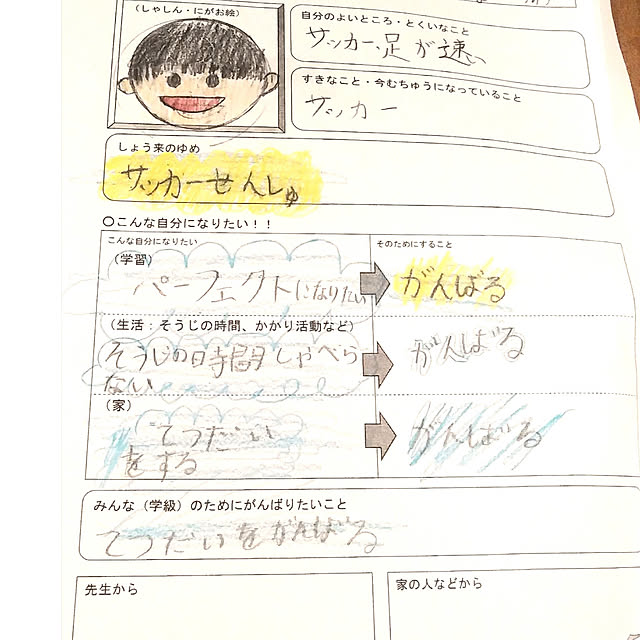 (しゃしん・にがお絵)
自分のよいところ・とくいなこと
サッカー、足が速い
すきなこと・今むちゅうになっていること
サッカー
しょう来のゆめ
サッカーせんしゅ
○こんな自分になりたい！！
こんな自分になりたい
そのためにすること
(学習)
パーフェクトになりたい
がんばる
(生活：そうじの時間、かかり活動など)
そうじの時間しゃべら
ない
がんばる
(家)
てつだい
をする
がんばる
みんな（学級）のためにがんばりたいこと
てつだいをがんばる
先生から
家の人などから